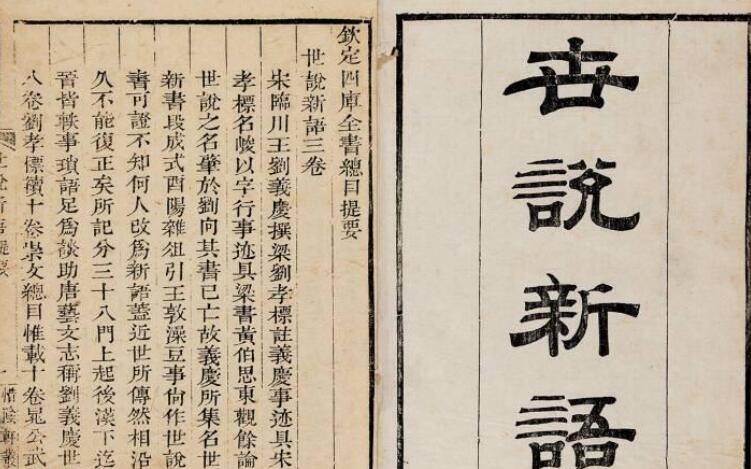 世說新語
欽定四庫全書總目提要
世說新語三卷
宋臨川王劉義慶撰梁劉孝標註義慶事迹具宋
孝標名峻以字行事迹具梁書黃伯思東觀餘論
世說之名肇於劉向其書已亡故義慶所集名世
新書段成式酉陽雜俎引王敦澡豆事尚作世說
書可證不知何人改爲新語蓋近世所傳然相沿
久不能復正矣所記分三十八門上起後漢下迄
晉皆軼事瑣語足爲談助唐藝文志稱劉義慶世
八卷劉孝標續十卷崇文總目惟載十卷晁公武